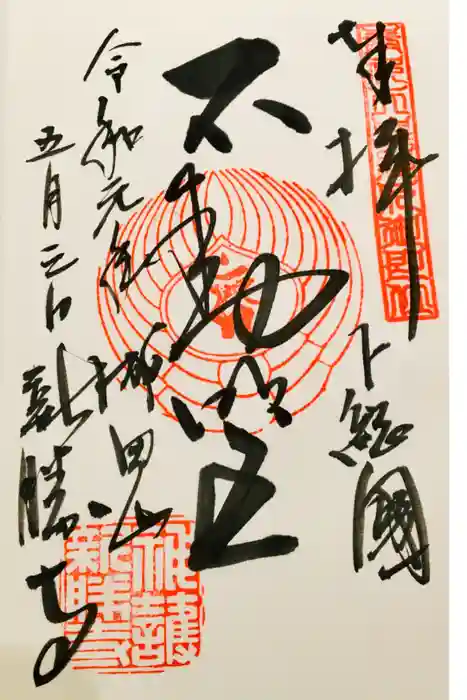 奉拝
下総國
不動明王
令和元年
五月三日
成田山
新勝寺
神護
新勝寺